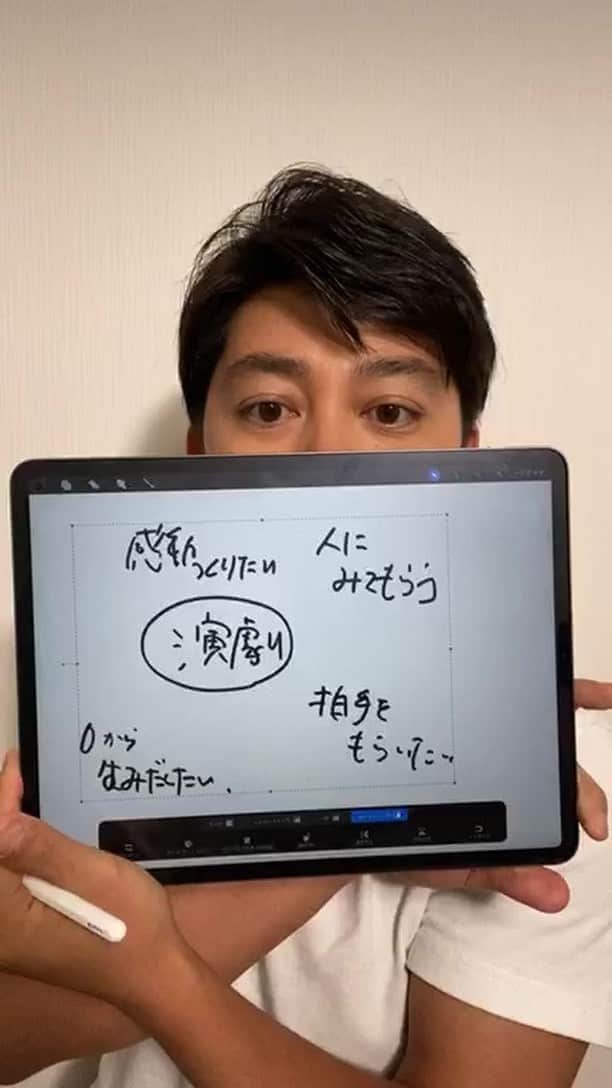 感動つくりたい
人に
みてもらう
演劇
拍手を
もらいたい
0から
生みだしたい、